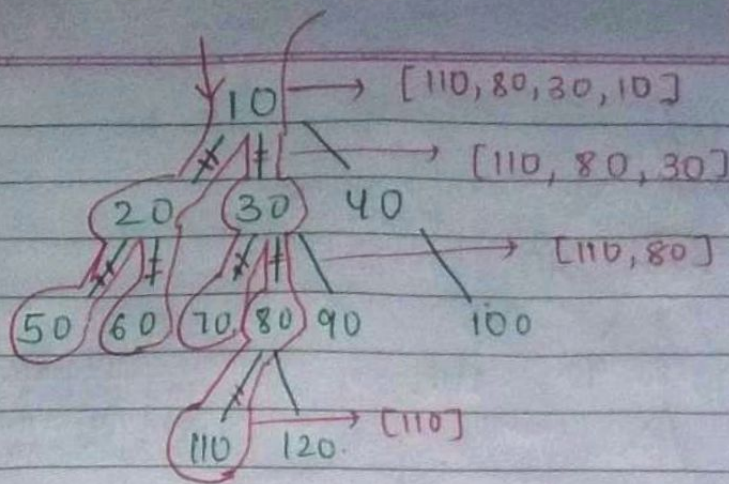 10 [110, 80, 30, 10]
[110, 80, 30]
20 30 40
[110, 80]
50 60 70 80 90 100
110 120. [110]